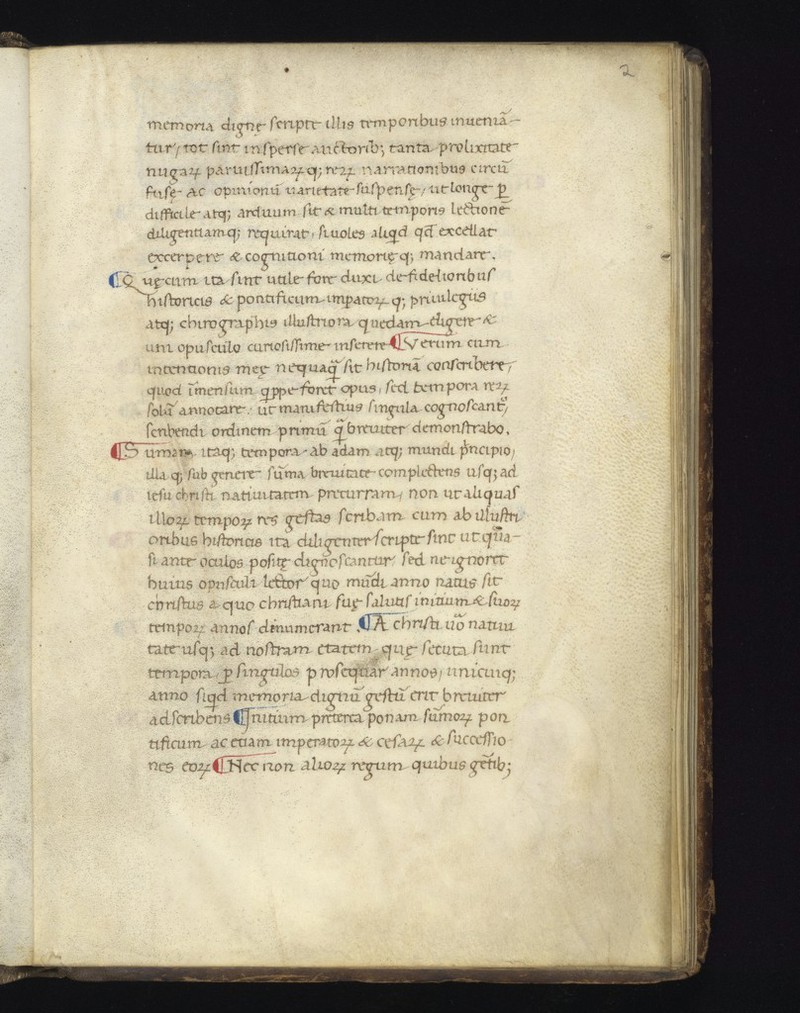 2
memoria digne̜ scripte illis temporibus inueniā-
tur, tot sint insperse auctorib; tanta prolixitate
nugaꝝ paruissimaꝝ q; reꝝ narrationibus circū
fuse̜ ac opinionū uarietate suspense̜, ut longe ꝑ
difficile atq; arduum sit & multi temporis lectionē
diligentiamq; requirat, siuoles aliqd qd̄ excellat
excerpere & cognitioni memorie̜ q; mandare.
¶ Que̜ cum ita sint utile fore duxi de fidelioribus
historicis & pontificum impatoꝝ q; priuilegiis
atq; chirographis illustriora quedam eligere &
uni opusculo curiosissime inserere ¶ Verum cum
intentionis me̜e̜ nequaq̄ sit historiā conscribere,
quod īmensum qppe foret opus, sed tempora reꝝ
solū annotare. ut manifestius singula cognoscant᷑,
scribendi ordinem primū q̄ breuiter demonstrabo.
¶ Sumam itaq; tempora ab adam atq; mundi pͥncipio,
illa q; sub genere sūma breuitate complectens usq; ad
iesu christi natiuitatem precurram, non ut aliquas
illoꝝ tempoꝝ res gestas scribam cum ab illustri
oribus historicis ita diligenter scripte sint ut qͣ̄-
si ante oculos posite̜ dignoscantur, sed ne ignoret
huius opusculi lector quo mūdi anno natus sit
christus a quo christiani sue̜ salutis initium & suoꝝ
tempoꝝ annos dinumerant. ¶ A christi uͦo natiui
tate usq; ad nostram etatem que̜ secuta sunt
tempora ꝑ singulos prosequar annos, unicuiq;
anno siqd memoria dignū gestū erit breuiter
adscribens ¶ Initium preterea ponam sūmoꝝ pon
tificum ac etiam imperatoꝝ & cesaꝝ & successio
nes eoꝝ ¶ Nec non alioꝝ regum quibus gētib;